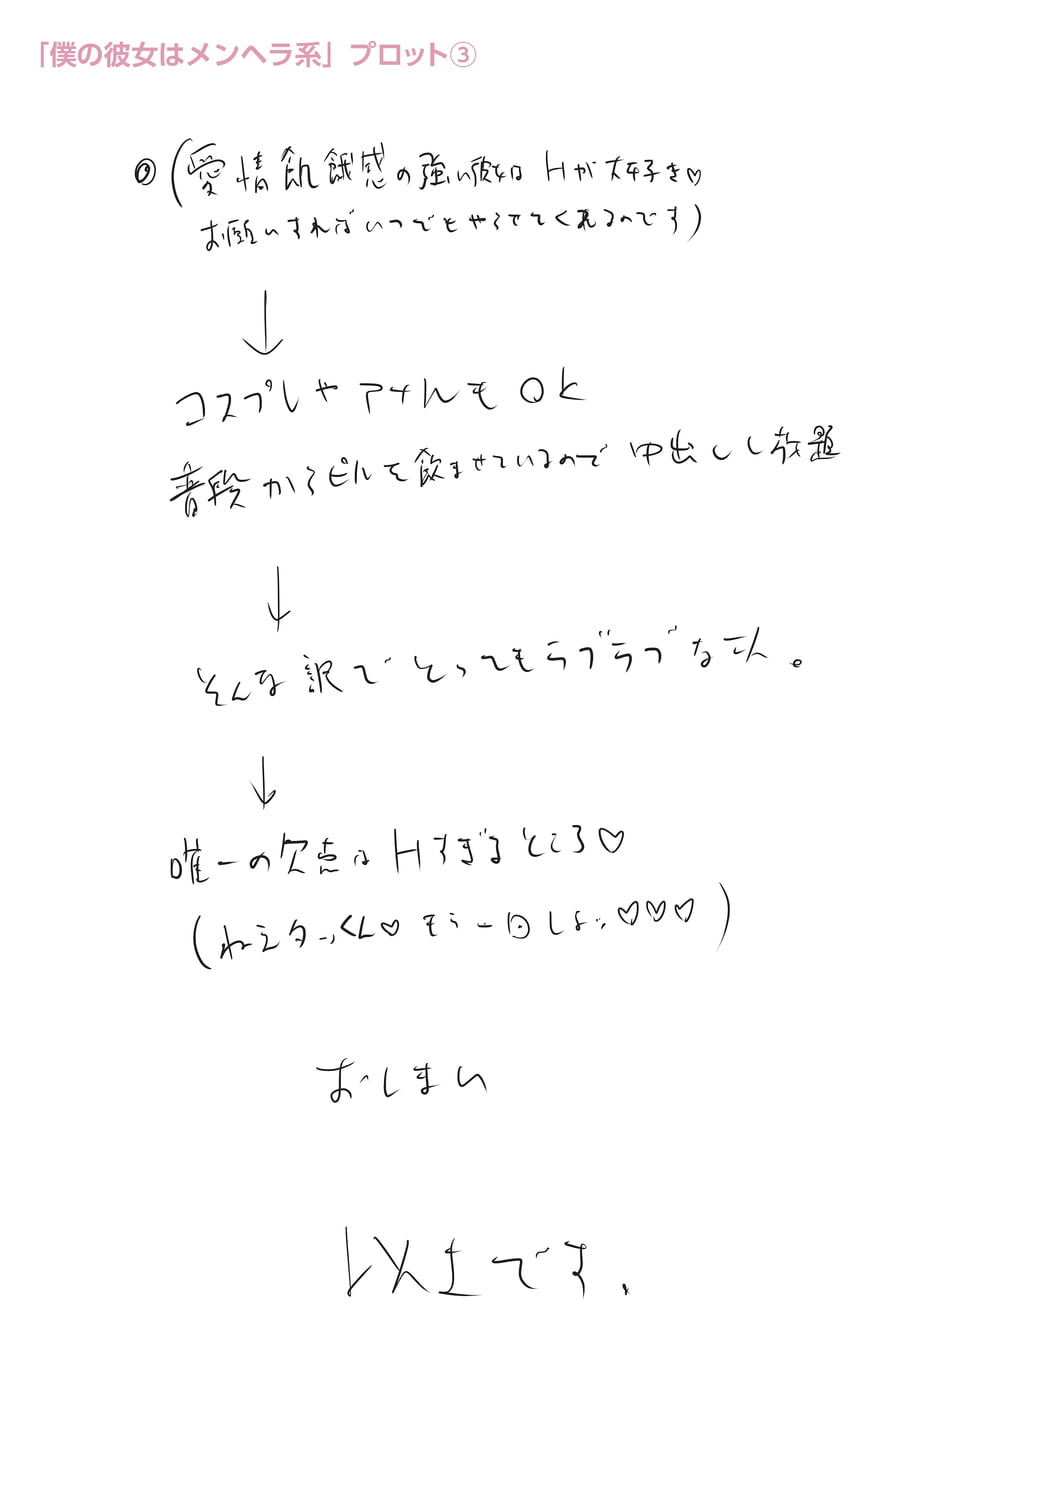 「僕の彼女はメンヘラ系」プロット③
(愛情飢餓感の強い彼女はHが大好き♡
お願いすればいつでもやらせてくれるのです)
↓
コスプレやアナルもOK
普段からピルを飲ませているので中出しし放題
↓
そんな訳でとってもラブラブな二人。
↓
唯一の欠点はHすぎるところ♡
(ねえタっくん♡もう一回しよっ♡♡♡)
おしまい
以上です.